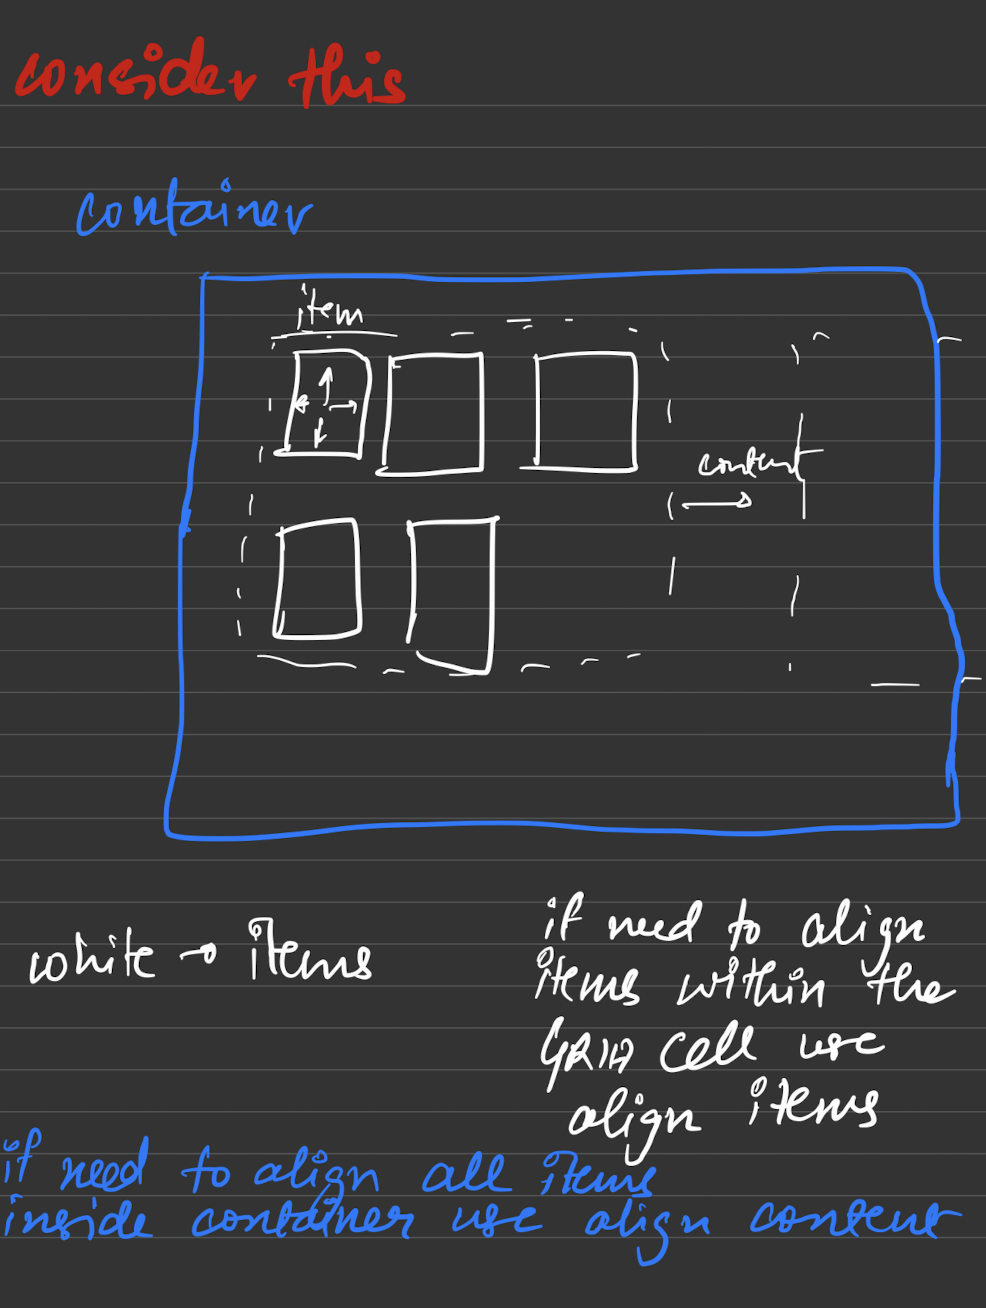 consider this
container
item
content
white → items
if need to align
items within the
GRID cell use
align items
if need to align all items
inside container use align content